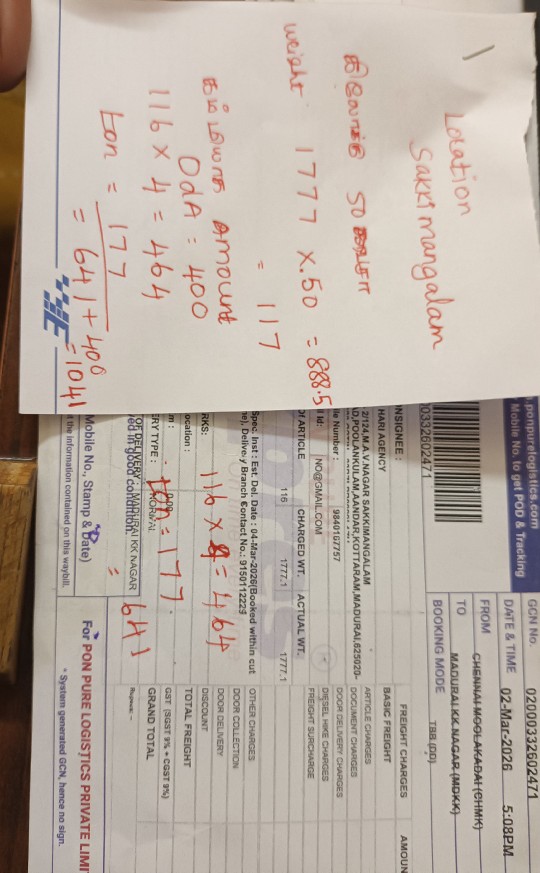 Location
Sakkimangalam
50
weight 1777 x .50 = 888.5
= 117
Amount
OdA = 400
116 x 4 = 464
ton = 177
= 641 + 400
= 1041
.ponpurelogistics.com
Mobile No. to get POD & Tracking
0332602471
GCN No. 02000332602471
DATE & TIME 02-Mar-2026 5:08PM
FROM CHENNAI MOOLAKADAI (CHMK)
TO MADURAI KK NAGAR (MDKK)
BOOKING MODE TBB (DD)
NSIGNEE :
HARI AGENCY
2/124,M.A.V.NAGAR SAKKIMANGALAM
D,POOLANKULAM,AANDAR,KOTTARAM,MADURAI,625020-
le Number : 9840167757
Id: NO@GMAIL.COM
OF ARTICLE CHARGED WT. ACTUAL WT.
116 1777.1 1777.1
FREIGHT CHARGES AMOUN
BASIC FREIGHT
ARTICLE CHARGES
DOCUMENT CHARGES
DOOR DELIVERY CHARGES
DIESEL HIKE CHARGES
FREIGHT SURCHARGE
OTHER CHARGES
DOOR COLLECTION
DOOR DELIVERY
DISCOUNT
TOTAL FREIGHT
GST (SGST 9% + CGST 9%)
GRAND TOTAL
Rupees: -
Spec. Inst : Est. Del. Date : 04-Mar-2026(Booked within cut
me), Delivery Branch Contact No.: 9150112229
RKS:
116 x 4 = 464
ocation :
ton = 177
ERY TYPE :
OF DELIVERY : MADURAI KK NAGAR
ed in good condition.
= 641
Mobile No., Stamp & Date)
t the information contained on this waybill.
For PON PURE LOGISTICS PRIVATE LIMI
* System generated GCN, hence no sign.